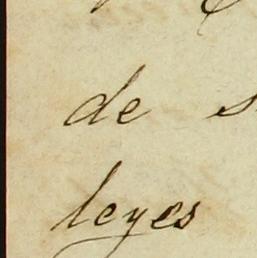 de
leyes